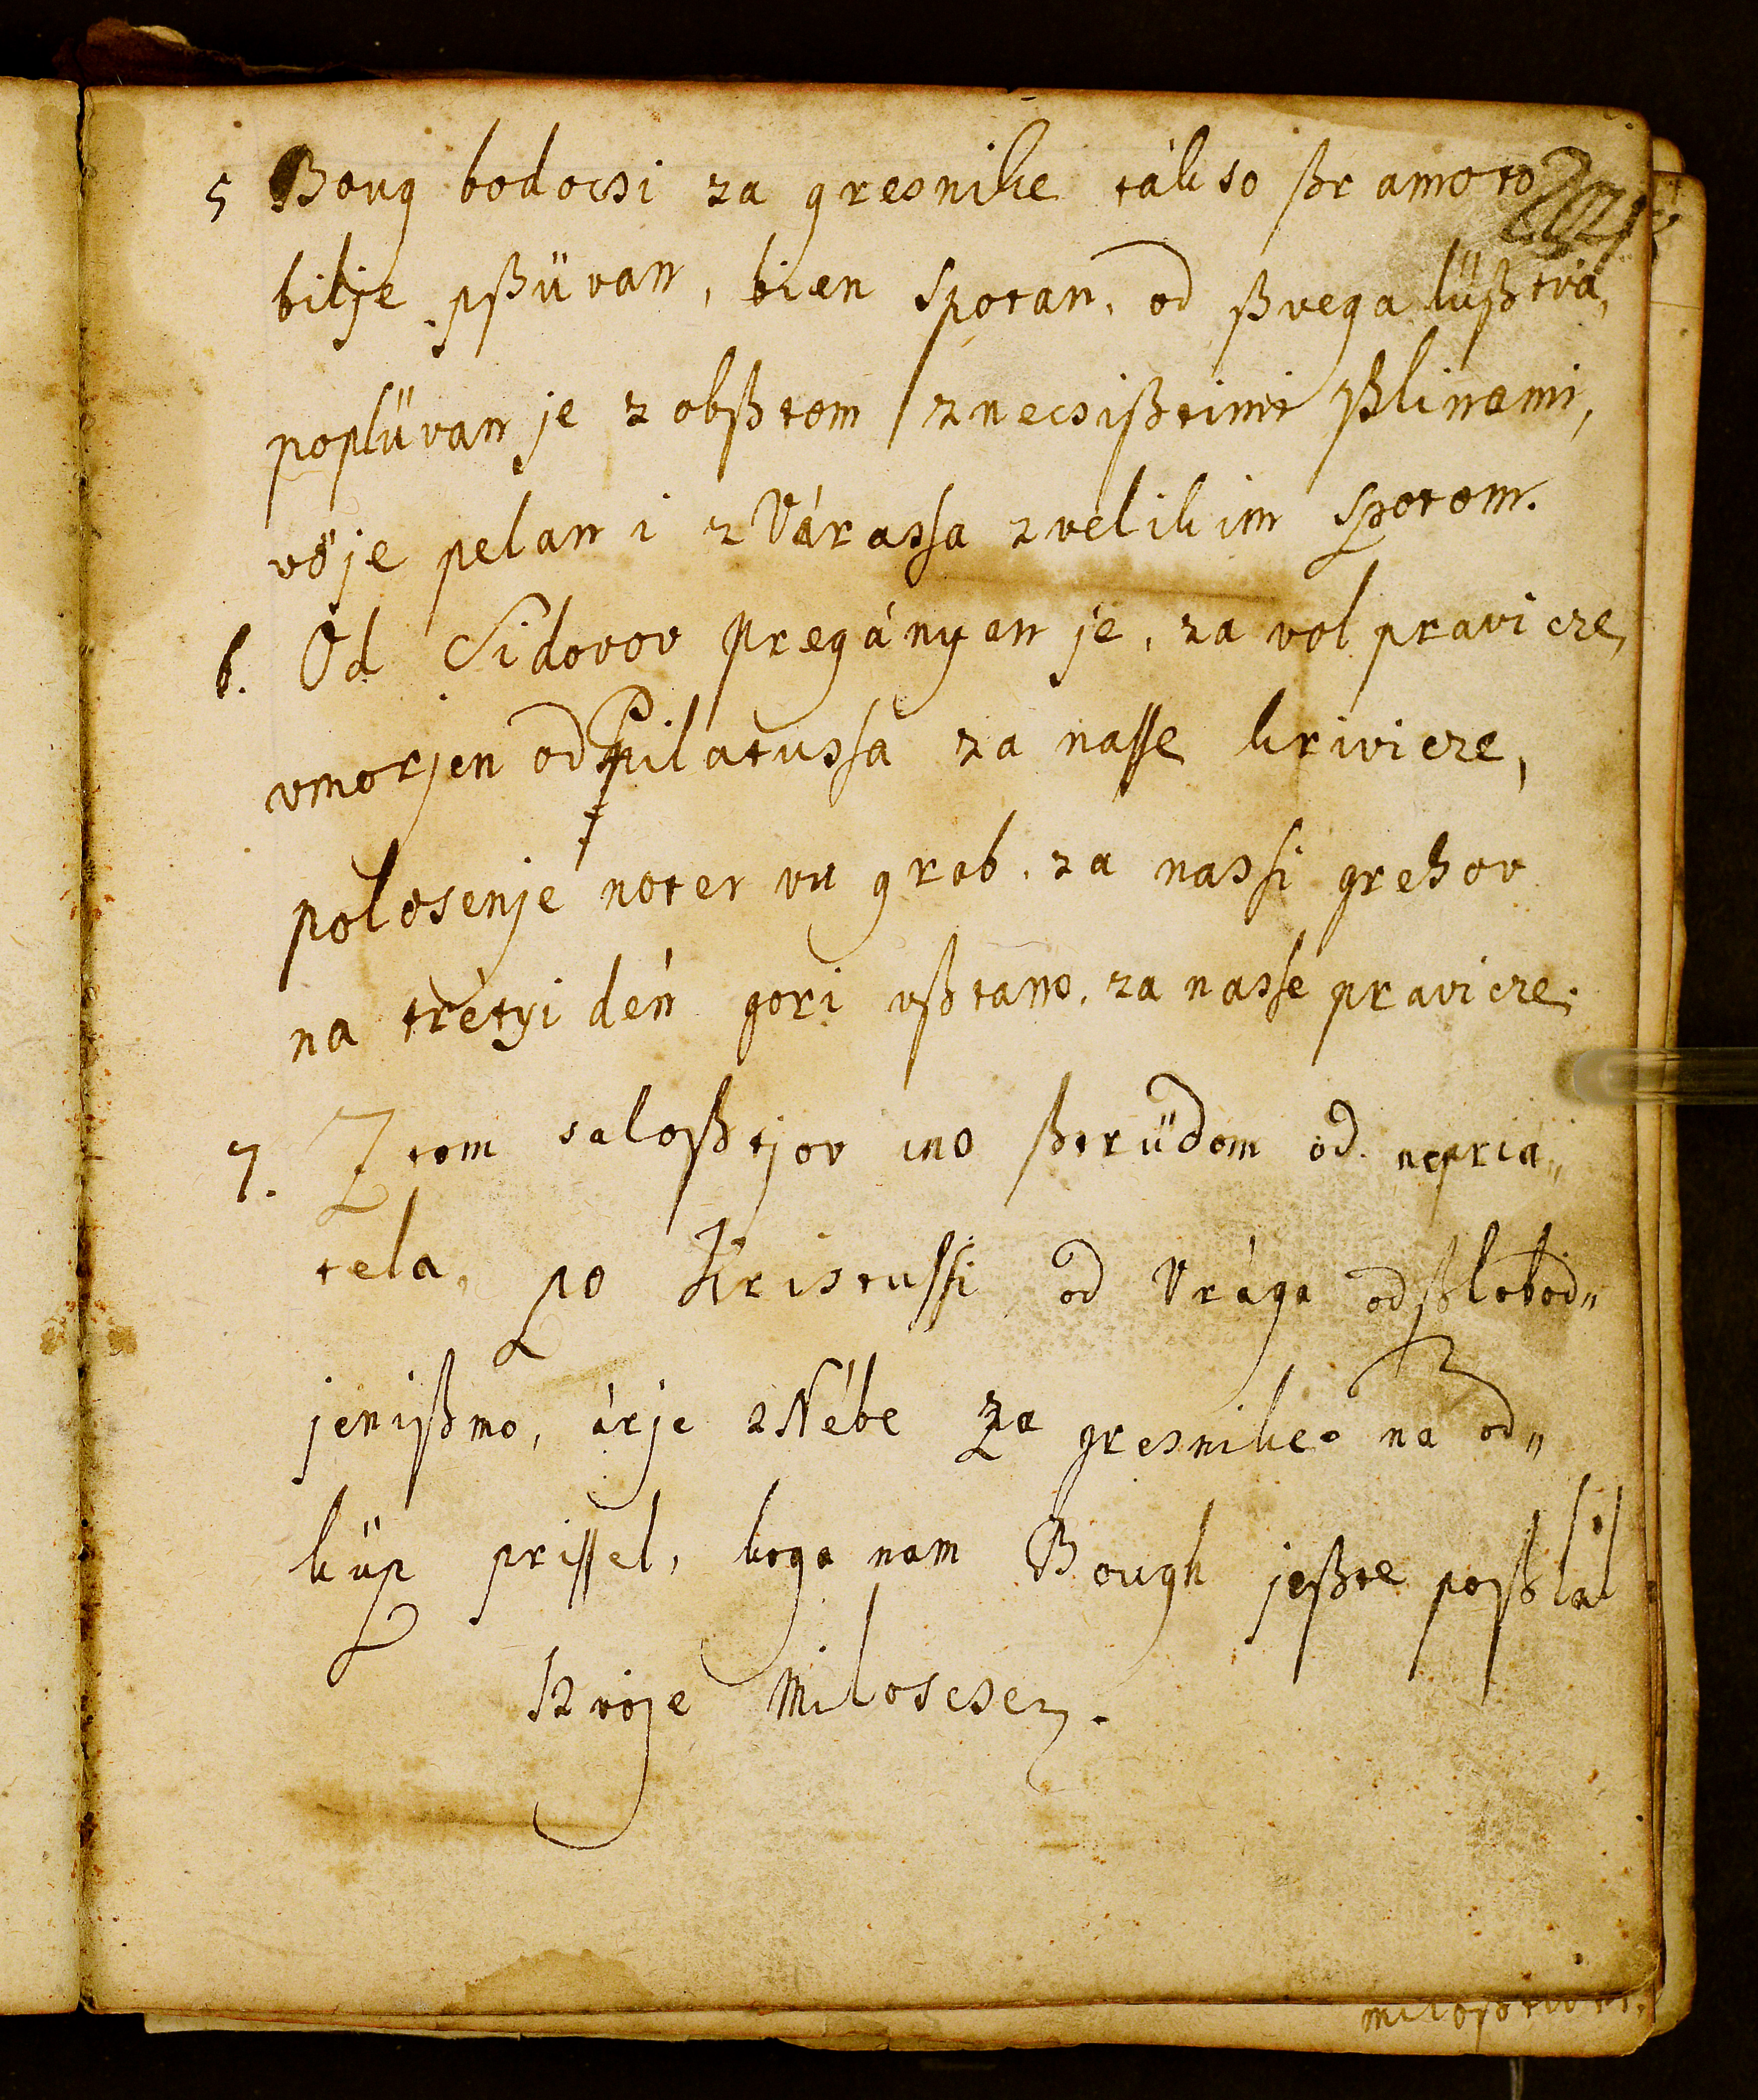 5 Boug bodocsi za gresnike tákso ßramoto
bilje pßüvan, bien Spotan, od ßvega lüßtva,
poplüvan je z obßtom znecsißtimi ßlinami,
vöje pelan i zVárassa zvelikim Spotom.
6. Od Sidovov pregányan je, za vol pravicze,
vmorjen od Pilatussa za nasse krivicze,
polosenje noter vu grob, za nassi grehov
na trétyi dén gori vßtano, za nassé pravicze.
7. Z tom saloßtjov ino ßtrüdom od nepria„
tela, po Kristussi od Vrága odßlobod„
jenißmo, árje z Nébe za gresnike na od„
küp prissel, koga nam Bough jeßte poßlal
Szvoje Miloscsez.